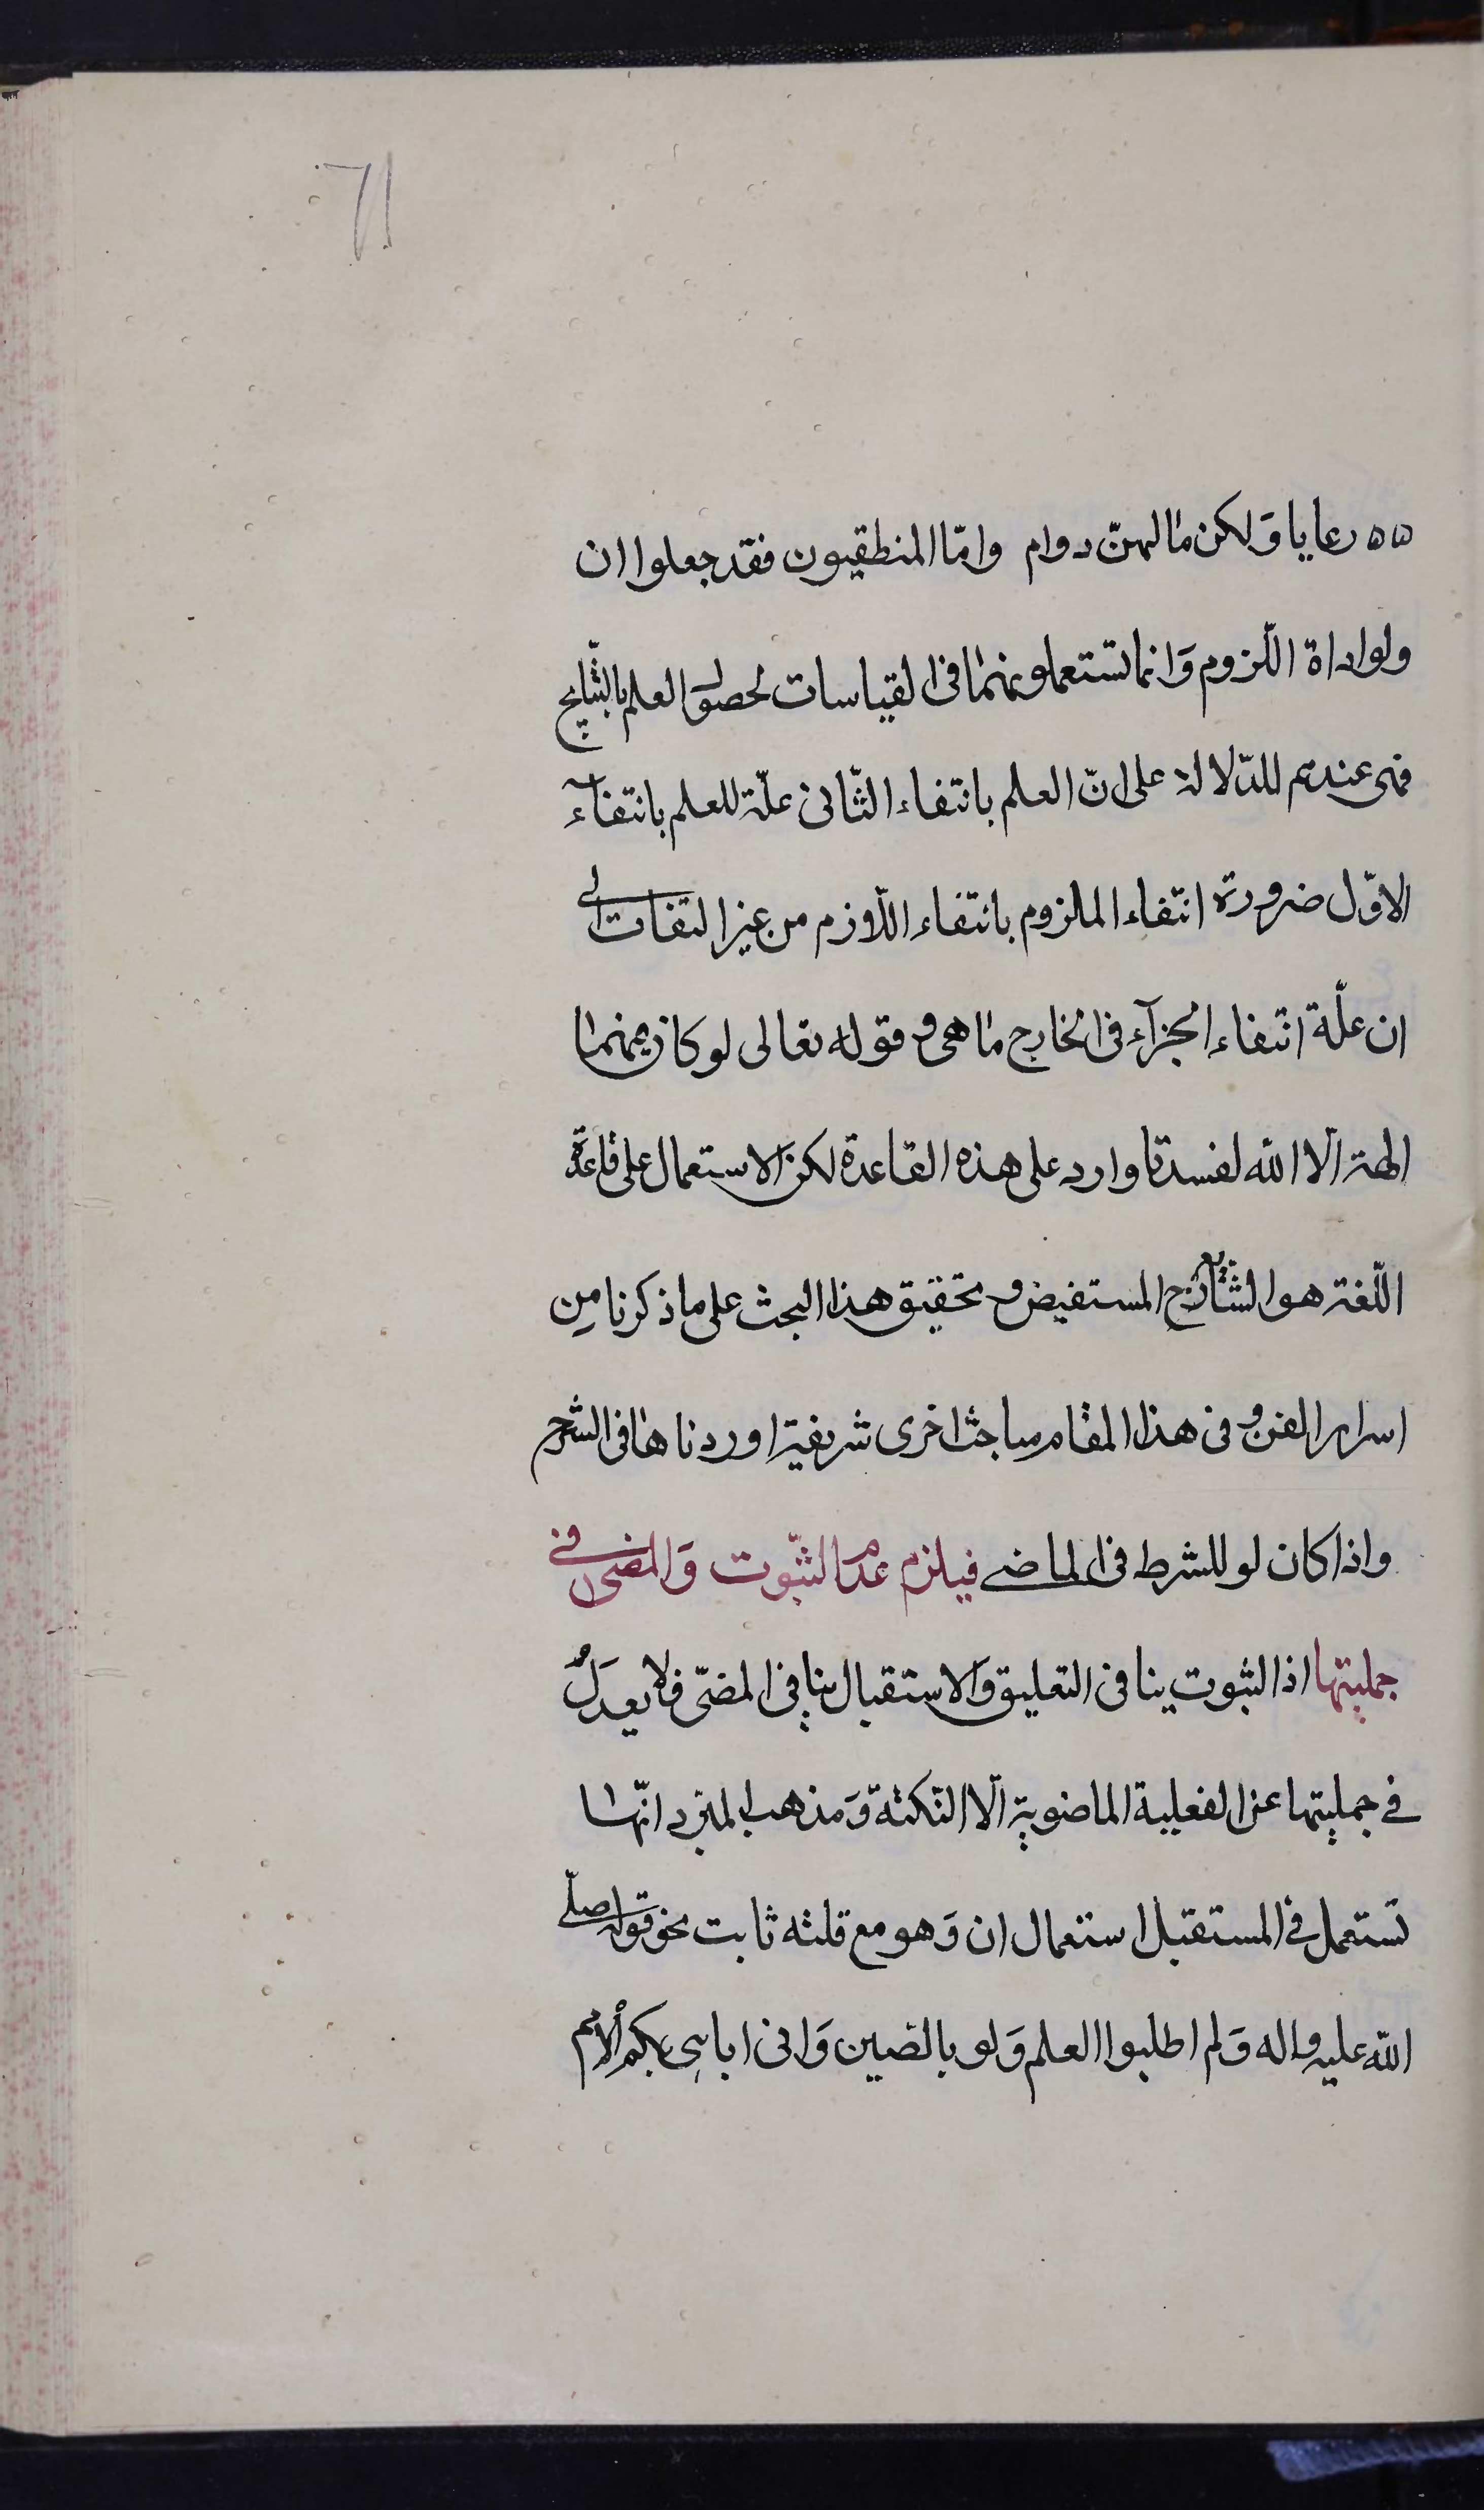 ٧١
٥٥ رعايا وَلكن ما لهنّ دوام وامّا المنطقيون فقد جعلوا ان
ولو اداة اللّزوم وَانما تستعملونهما فى القياسات لحصول العلم بالنّتايج
فهى عندهم للدّلالة على انّ العلم بانتفاء الثّانى علّة للعلم بانتفاء
الاوّل ضرورة انتفاء الملزوم بانتفاء اللّازم من غير التفات الى
ان علّة انتفاء الجزآء فى الخارج ما هى و قوله تعالى لو كان فيهما
الهة الّا الله لفسدتا وارد على هذه القاعدة لكن الاستعمال على قاعدة
اللّغة هو الشّايع المستفيض و تحقيق هذا البحث على ما ذكرنا من
اسرار الفن و فى هذا المقام مباحث اخرى شريفة اوردناها فى الشرح
واذا كان لو للشرط فى الماضے فيلزم عدم الثّبوت وَالمضى فے
جملتيها اذ الثبوت ينافى التعليق وَالاستقبال ينافى المضىّ فلا يعدَلُ
فے جملتيها عن الفعلية الماضوية الّا النّكتة وَمذهب المبرد انّها
تستعمل فے المستقبل استعمال ان وَهو مع قلته ثابت نحو قوله صلّے
اللّه عليه واله وَلم اطلبوا العلم وَلو بالصين وَانى اباهى بكم الامم